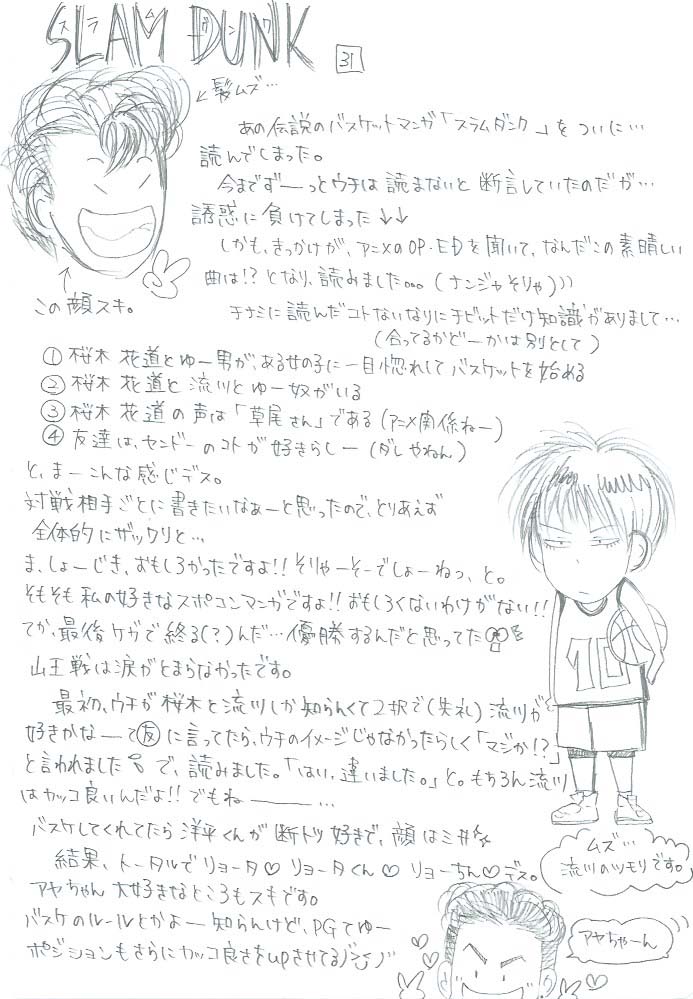 SLAM DUNK
スラムダンク
31
←髪ムズ…
あの伝説のバスケットマンガ「スラムダンク」をついに…
読んでしまった。
今までずーっとウチは読まないと断言していたのだが…
誘惑に負けてしまった↓↓
しかも、きっかけが、アニメのOP・EDを聞いて、なんだこの素晴しい
曲は!?となり、読みました。。。(ナンジャそりゃ)))
↑
この顔スキ。
チナミに読んだコトないなりにチビットだけ知識がありまして…
(合ってるかどーかは別として)
① 桜木花道とゆー男が、ある女の子に一目惚れしてバスケットを始める
② 桜木花道と流川とゆー奴がいる
③ 桜木花道の声は「草尾さん」である(アニメ関係ねー)
④ 友達は、センドーのコトが好きらしー(ダレやねん)
と、まーこんな感じデス。
対戦相手ごとに書きたいなぁーと思ったので、とりあえず
全体的にザックリと…
ま、しょーじき、おもしろかったですよ!!そりゃーそーでしょーねっ、と。
そもそも私の好きなスポコンマンガですよ!!おもしろくないわけがない!!
てか、最後ケガで終る(?)んだ…優勝するんだと思ってた
山王戦は涙がとまらなかったです。
最初、ウチが桜木と流川しか知らんくて2択で(失礼)流川が
好きかなーて友に言ってたら、ウチのイメージじゃなかったらしく「マジか!?」
と言われました で、読みました。「はい、違いました。」と。もちろん流川
はカッコ良いんだよ!!でもね――…
バスケしてくれてたら洋平くんが断トツ好きで、顔はミ井☆
結果、トータルでリョータ♡リョータくん♡リョーちん♡デス。
アヤちゃん大好きなところもスキです。
バスケのルールとかよー知らんけど、PGてゆー
ポジションもさらにカッコ良さをupさせてる
10
ムズ…
流川のツモリです。
アヤちゃーん